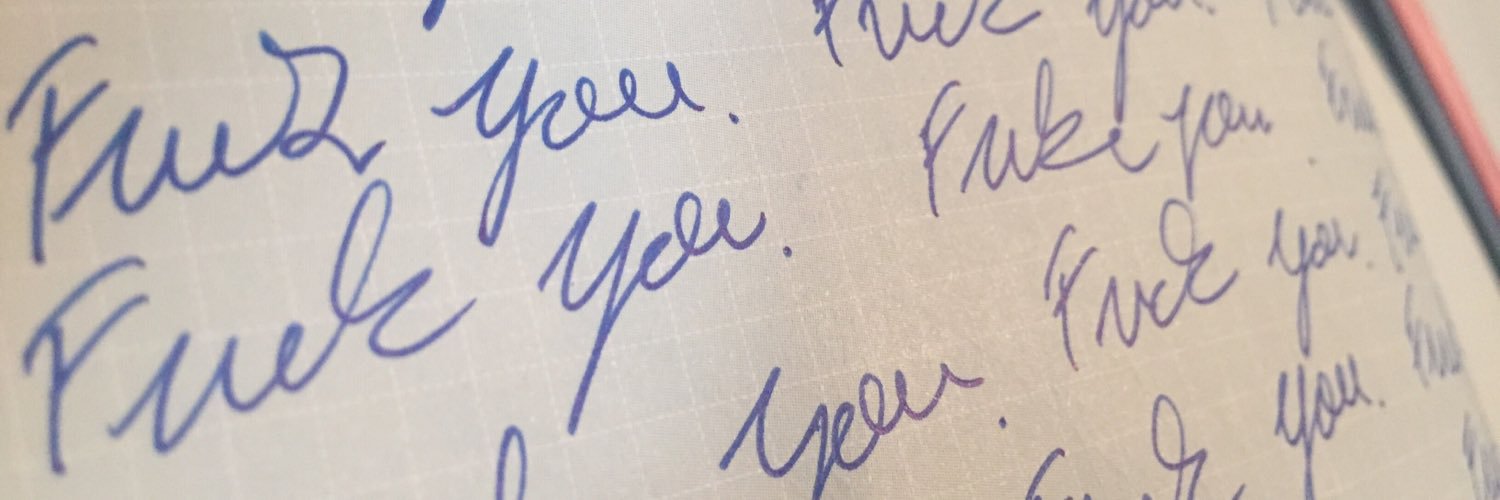 Fuck you.
Fuck you.
Fuck you.
Fuck you
Fuck you.
you.
Fuck you.